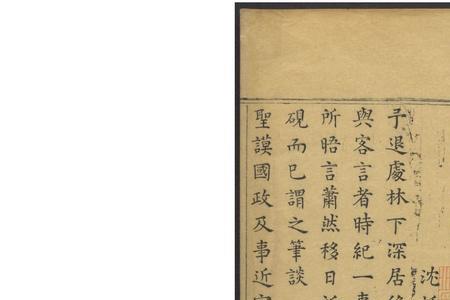 沈
予退處林下深居
與客言者時紀一事
所晤言蕭然移日
硯而已謂之筆談
聖謨國政及事近宮